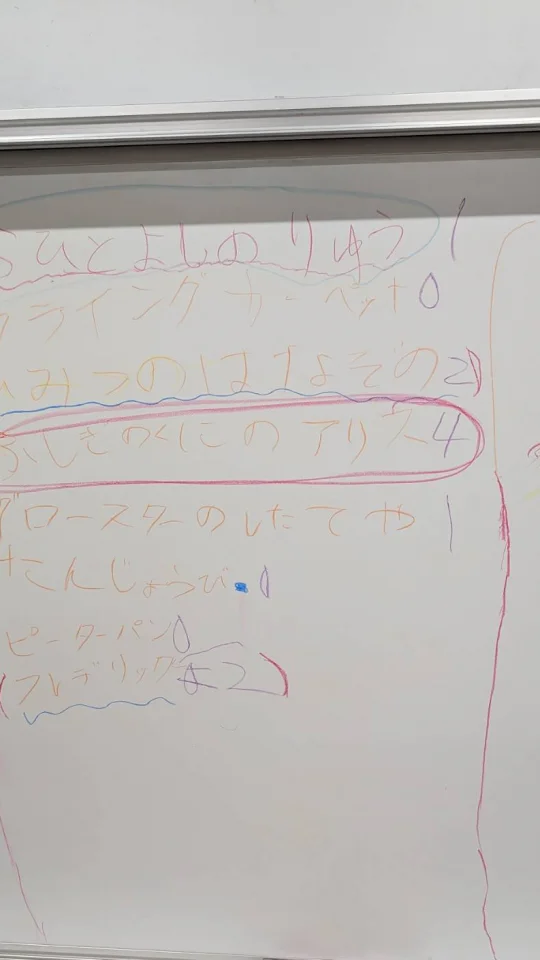 ひとよしのりゅう 1
フライングカーペット 0
ひみつのはなぞの 2
ふしぎのくにのアリス 4
グロースターのしたてや 1
たんじょうび 0
ピーターパン 0
(フレデリック 2)